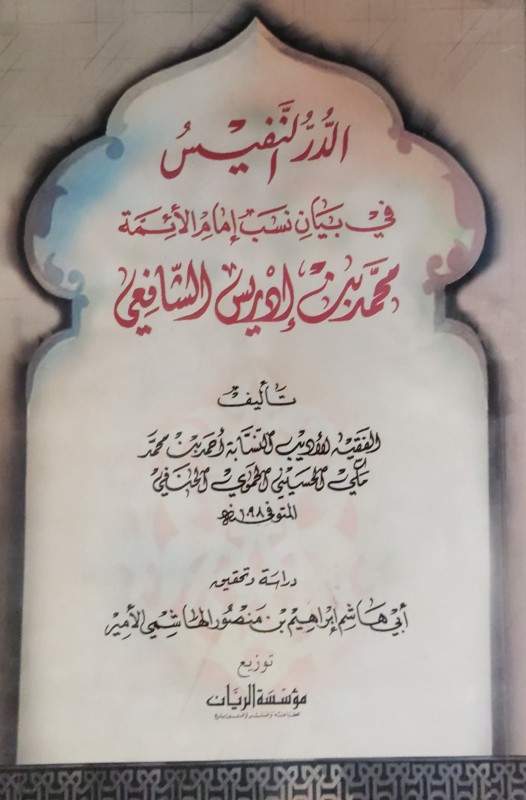 الدُّرُّ النَّفِيسُ
فِي بَيَانِ نَسَبِ إِمَامِ الأَئِمَّة
مُحَمَّد بِن إِدْرِيس الشَّافِعِي
تَألِيفُ
الفقيه الأديب النسّابة أحمد بن محمّد
مكّي الحسيني الحموي الحنفي
المتوفى سنة ١٠٩٨ هـ
دراسة وتحقيق
أبي هاشم إبراهيم بن منصور الهاشمي الأمير
توزيع
مؤسّسة الريّان
للطباعة والنشر والتوزيع